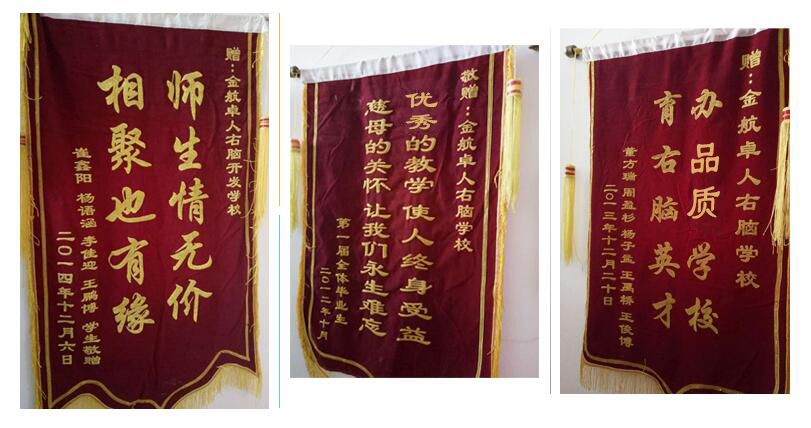 赠：金航卓人右脑开发学校
师生情无价
相聚也有缘
崔鑫阳 杨语涵 李佳迎 王鹏博 学生敬赠
二〇一四年十二月六日
敬赠：金航卓人右脑学校
优秀的教学 使人终身受益
慈母的关怀 让我们永生难忘
第一届全体毕业生
二〇一二年十月
赠：金航卓人右脑学校
办品质学校
育右脑英才
董方瑞 周盈杉 杨子孟 王禹桥 王俊博
二〇一三年十二月二十日